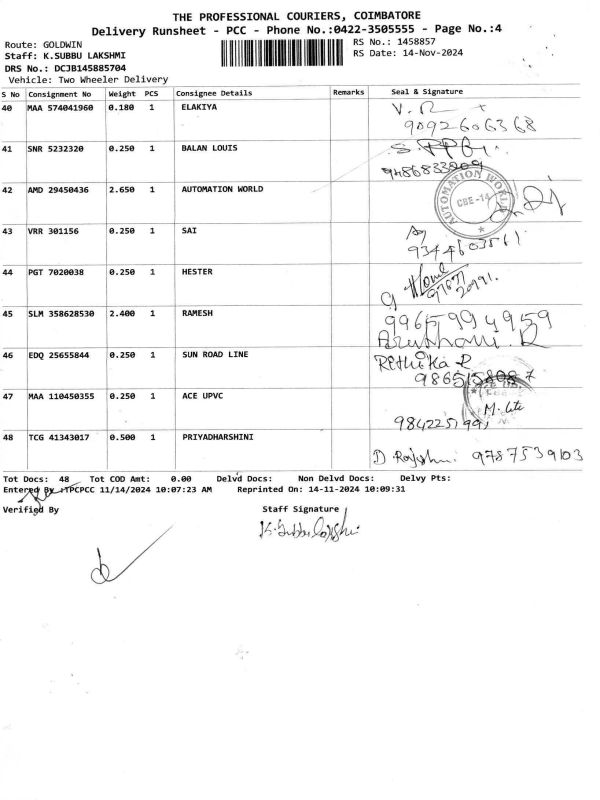 THE PROFESSIONAL COURIERS, COIMBATORE
Delivery Runsheet - PCC - Phone No.:0422-3505555 - Page No.:4
Route: GOLDWIN
RS No.: 1458857
Staff: K.SUBBU LAKSHMI
RS Date: 14-Nov-2024
DRS No.: DCJB145885704
Vehicle: Two Wheeler Delivery
S No Consignment No Weight PCS Consignee Details Remarks Seal & Signature
40 MAA 574041960 0.180 1 ELAKIYA
9092606368
41 SNR 5232320 0.250 1 BALAN LOUIS
9486833909
42 AMD 29450436 2.650 1 AUTOMATION WORLD
AUTOMATION WORLD
CBE-14
43 VRR 301156 0.250 1 SAI
9344603561
44 PGT 7020038 0.250 1 HESTER
45 SLM 358628530 2.400 1 RAMESH
9965994959
46 EDQ 25655844 0.250 1 SUN ROAD LINE
Rethika R
47 MAA 110450355 0.250 1 ACE UPVC
48 TCG 41343017 0.500 1 PRIYADHARSHINI
9787539103
Tot Docs: 48 Tot COD Amt: 0.00 Delvd Docs: Non Delvd Docs: Delvy Pts:
Entered By :TPCPCC 11/14/2024 10:07:23 AM Reprinted On: 14-11-2024 10:09:31
Verified By Staff Signature
K. Subbu Lakshmi